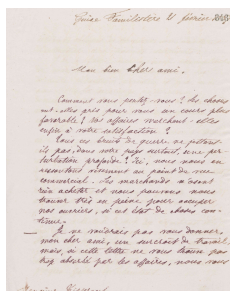 Guise Familistère 21 février 1887
Mon bien cher ami,
Comment vous portez-vous? Les choses
ont-elles pris pour vous un cours plus
favorable? Vos affaires marchent-elles
enfin à votre satisfaction?
Tous ces bruits de guerre ne jettent-
ils pas, dans votre pays surtout, une per-
turbation profonde? Ici, nous nous en
ressentons vivement au point de vue
commercial. Les marchands n'osent
rien acheter et nous pouvons nous
trouver très en peine pour occuper
nos ouvriers, si cet état de choses con-
tinue.
Je ne voudrais pas vous donner,
mon cher ami, un surcroît de travail
mais si cette lettre ne vous trouve pas
trop absorbé par les affaires, vous